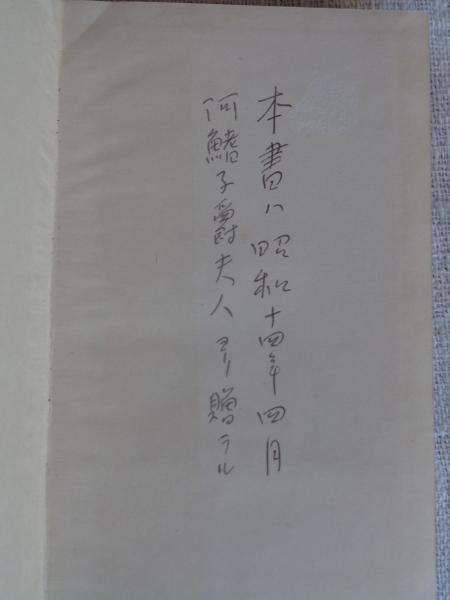 本書ハ昭和十四年四月
何鰭子爵夫人ヨリ贈ラル